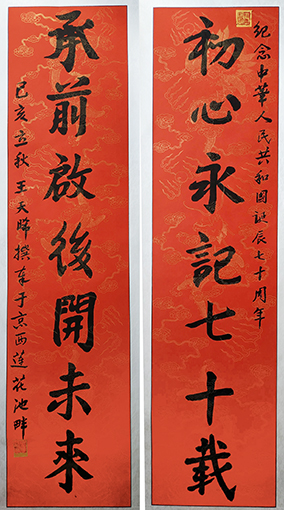 紀念中華人民共和国誕辰七十周年
初心永記七十載
承前啟後開未來
己亥立秋王天
撰
于京西蓮花池畔